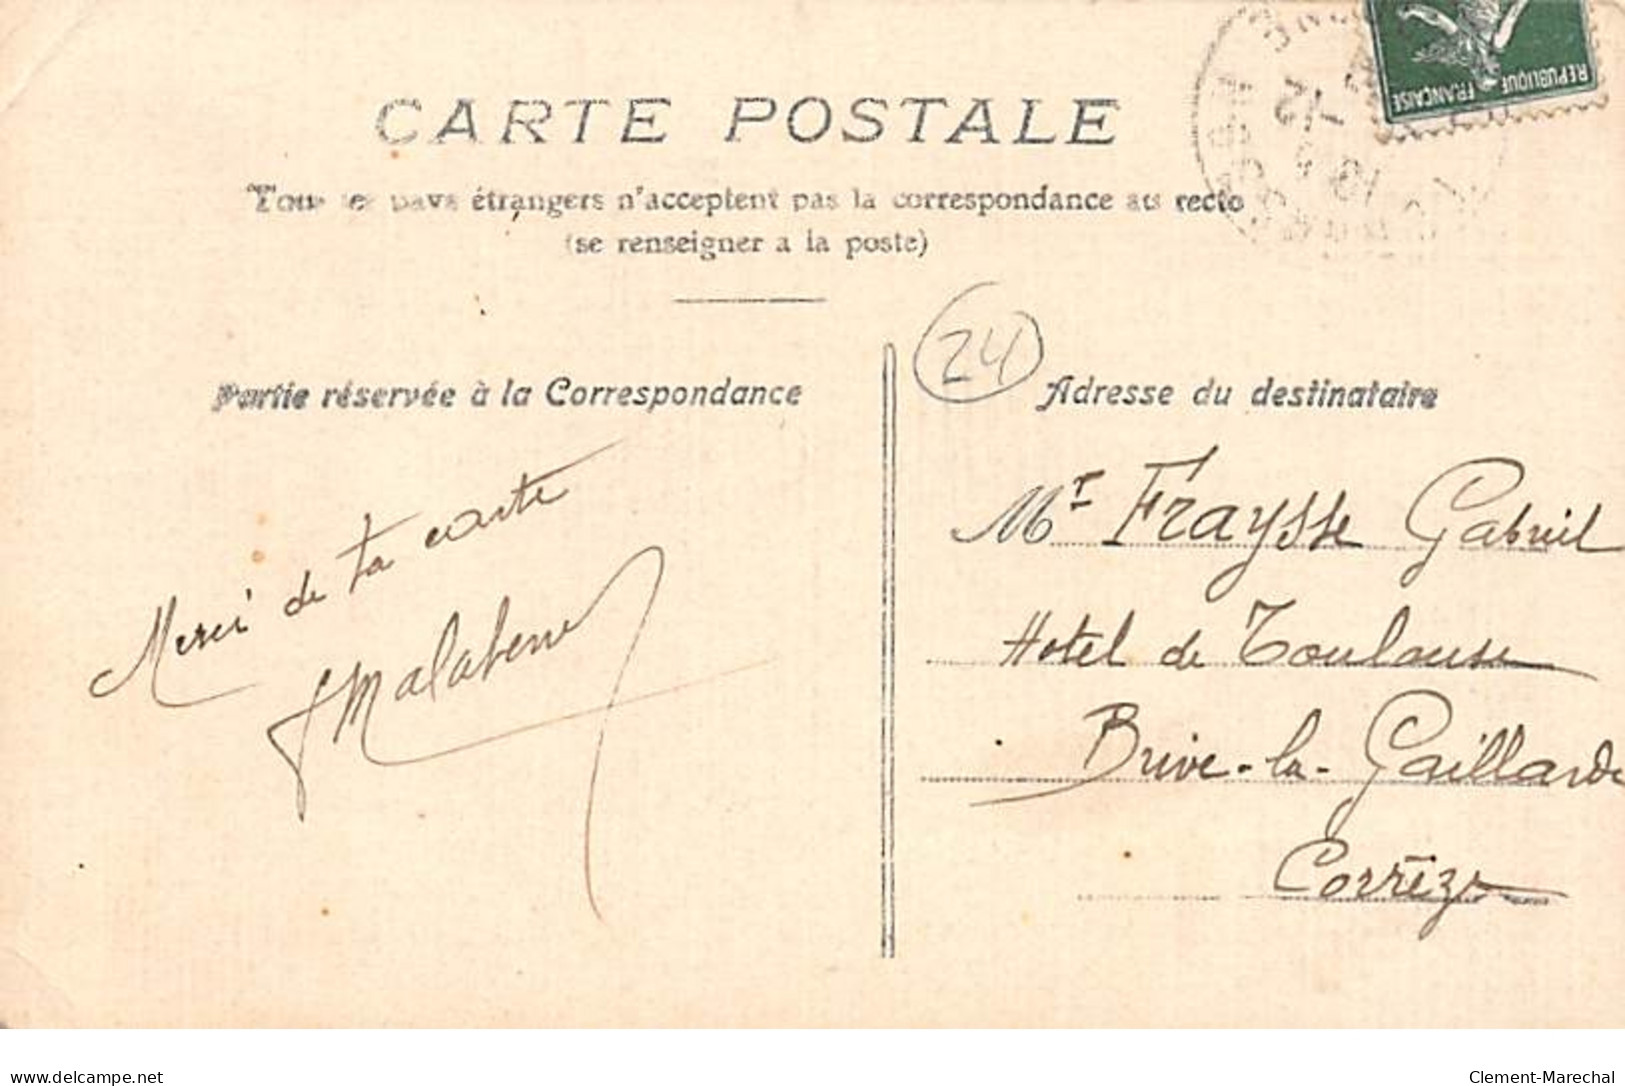 CARTE POSTALE
Tous les pays étrangers n'acceptent pas la correspondance au recto
(se renseigner a la poste)
RÉPUBLIQUE FRANÇAISE
12
24
Partie réservée à la Correspondance
Merci de ta carte
Adresse du destinataire
Mr Fraysse Gabriel
Hotel de Toulouse
Brive-la-Gaillarde
Corrèze
delcampe.net
Clement-Marechal